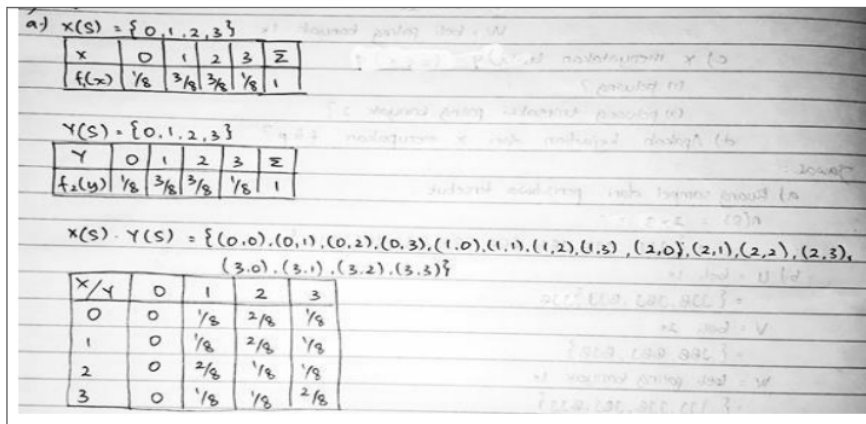 a.) X(S) = {0,1,2,3}
x 0 1 2 3 Σ
f₁(x) 1/8 3/8 3/8 1/8 1
Y(S) = {0,1,2,3}
Y 0 1 2 3 Σ
f₂(y) 1/8 3/8 3/8 1/8 1
X(S) . Y(S) = {(0,0),(0,1),(0,2),(0,3),(1,0),(1,1),(1,2),(1,3),(2,0),(2,1),(2,2),(2,3),
(3,0),(3,1),(3,2),(3,3)}
X/Y 0 1 2 3
0 0 1/8 2/8 1/8
1 0 1/8 2/8 1/8
2 0 2/8 1/8 1/8
3 0 1/8 1/8 2/8